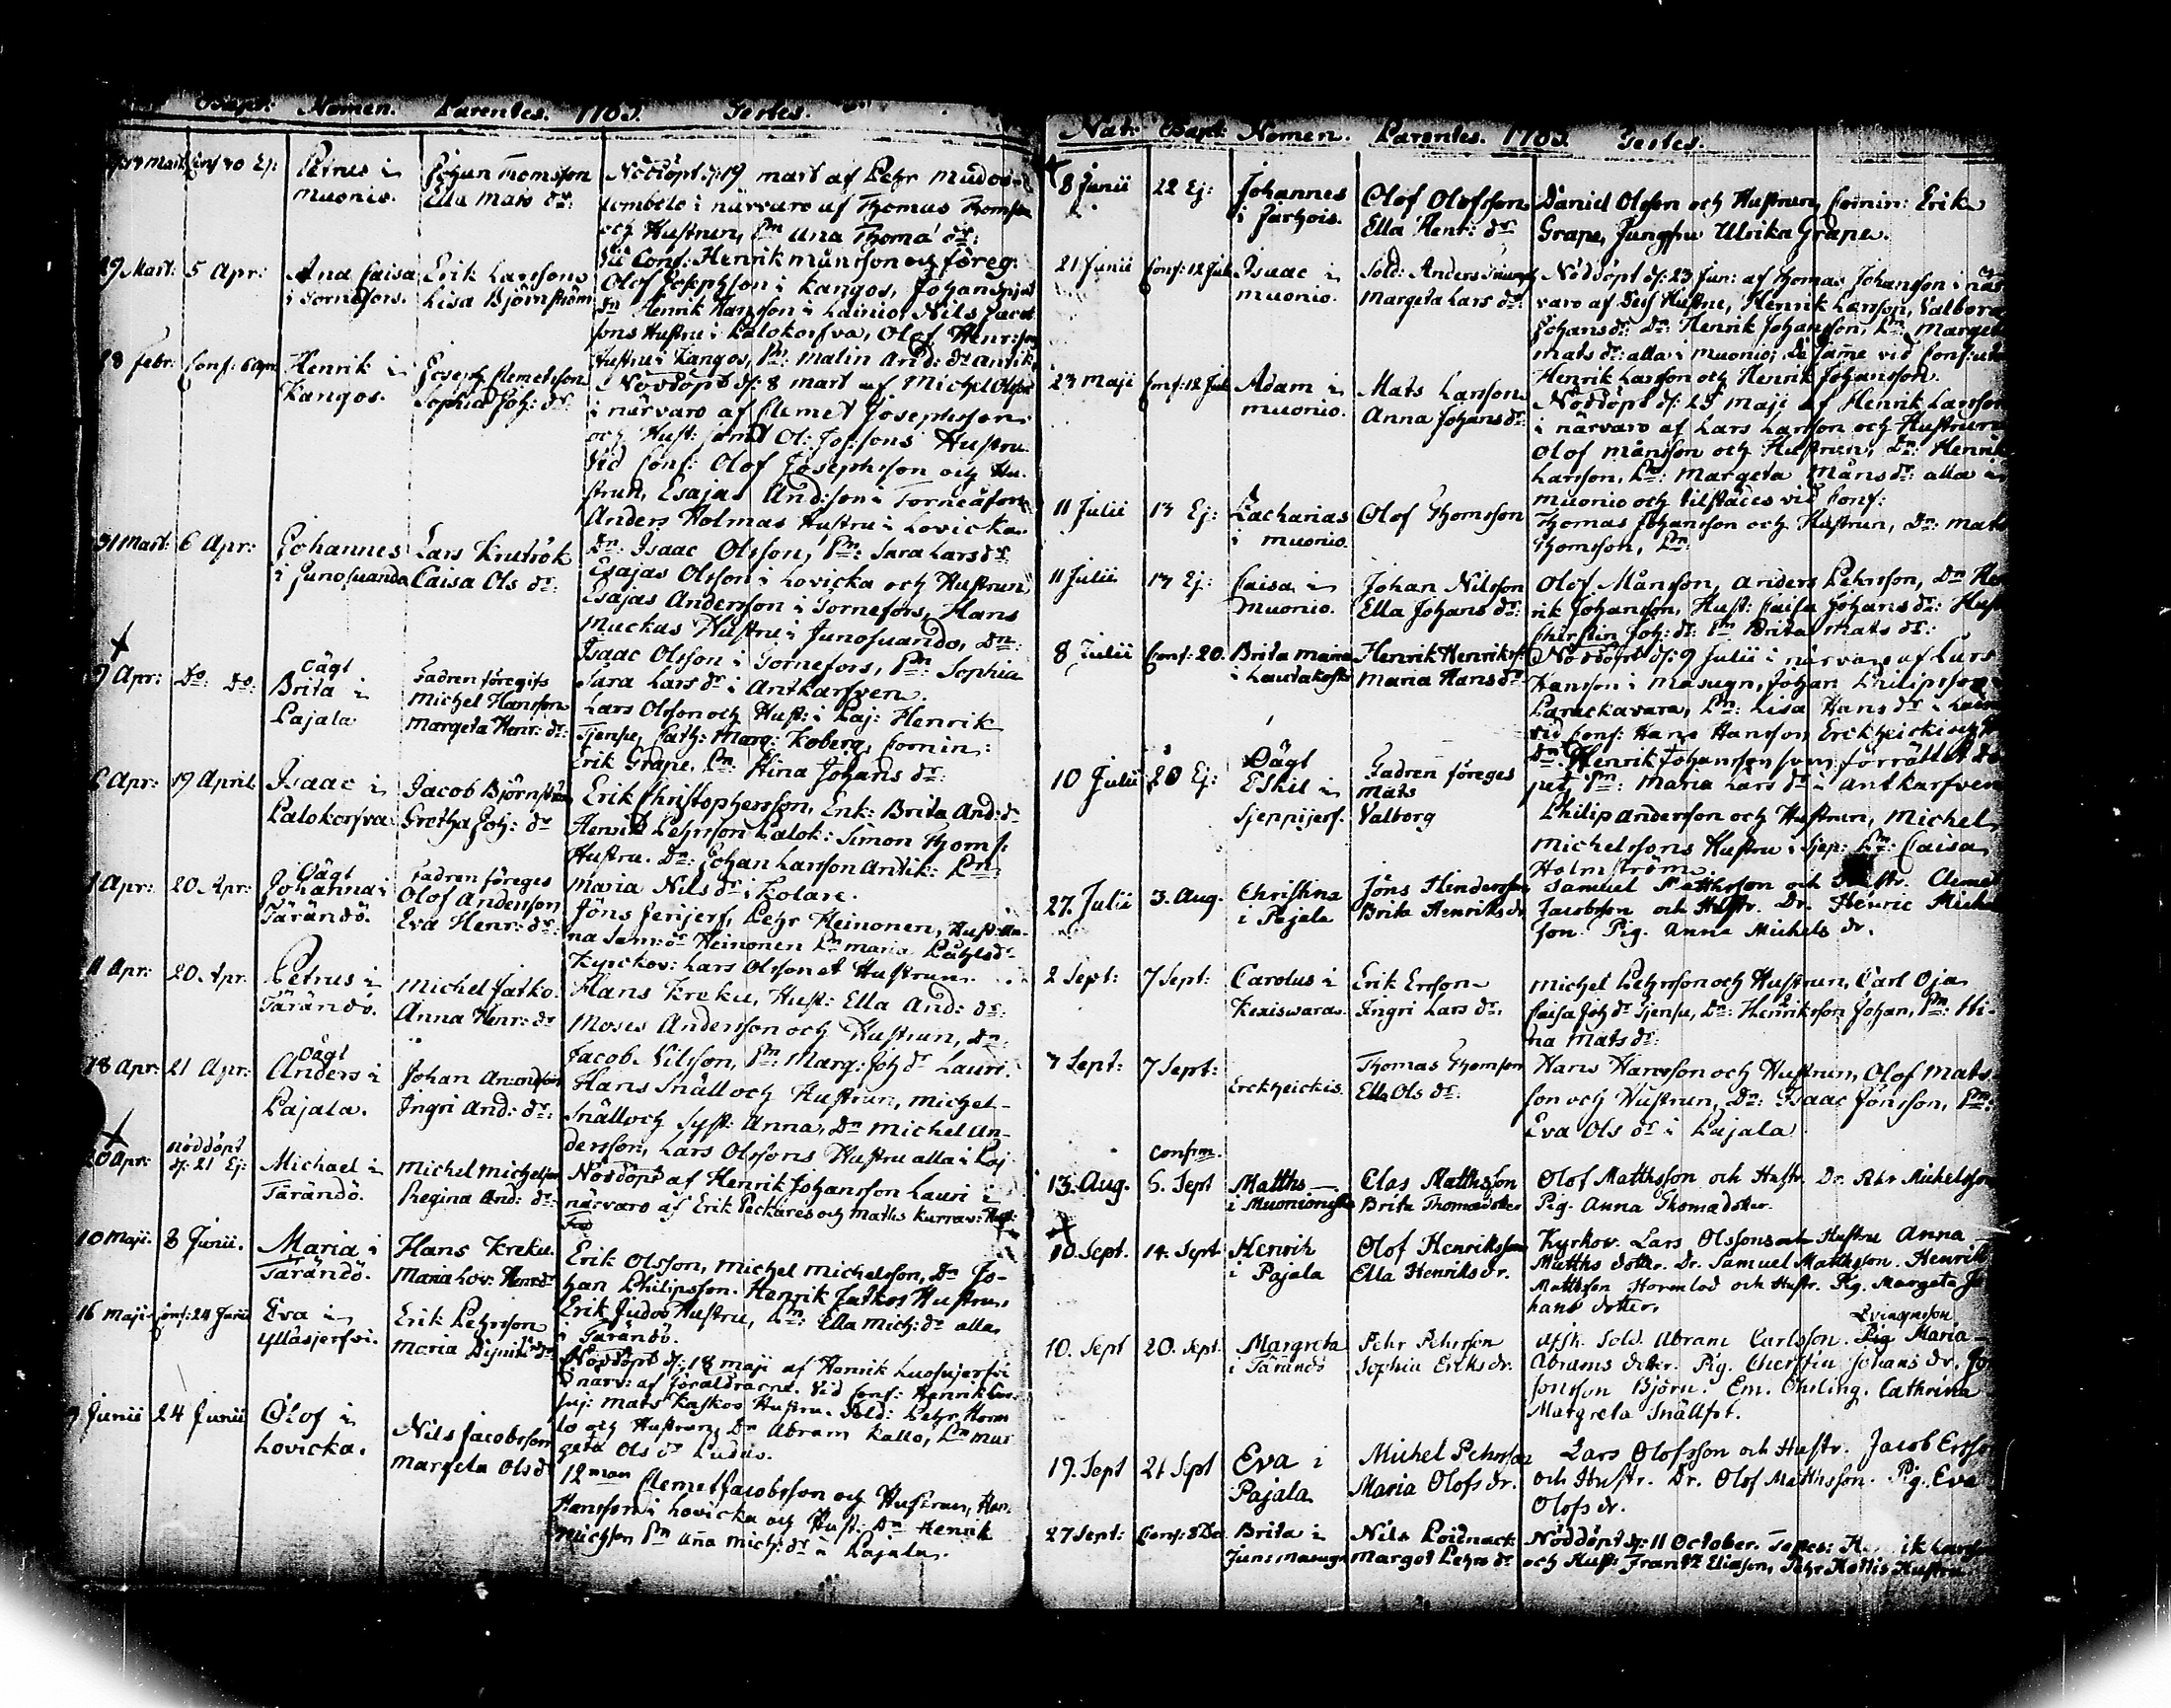 Bapt: Nomen. Parentes. 1783. Testes.
Petrus i
muonio.
Johan Tomsson
Ella Mats dr:
Nöddöpt d: 19 mart af Pehr Mudos-
lombolo i närvaro af Thomas Thomson
och Hustrun, Pm Ana Thomæ dr:
Vid Conf: Henrik månsson och föreg:
29 Mart: 5 Apr:
Ana Caisa
i Tornefors.
Erik Larsson
Lisa Björnström
Olof Josephsson i Kangos, Johan
Dn Henrik Hansson i Lainio, Nils Jacob
sons Hustru i Palokorfva, Olof Henr:sons
Hustru i Kangos, Pm: Malin And: dr
28 Febr: Conf: 6 Apr
Henrik i
Kangos.
Joseph Clemetsson
Sophia Joh: dr
Nöddöpt d: 8 mart af Michel Olsson
i närvaro af Clemet Josephsson
och Hust: samt Ol: Jos:sons Hustru.
Vid Conf: Olof Josephsson och Hu-
strun, Esajas And:son i Torneåfors
Anders Holmas Hustru i Lovicka
Dn: Isaac Olsson, Pm: Sara Lars dr
31 Mart: 6 Apr:
Johannes
i Junosuanda
Lars Krutrök
Caisa Ols dr:
Esajas Olsson i Lovicka och Hustrun
Esajas Andersson i Tornefors, Hans
Muckas Hustru i Junosuando, Dn:
Isaac Olsson i Tornefors, Pm Sophia
Sara Lars dr i Antkarfven.
9 Apr: Do: Do:
oägt
Brita i
Pajala
Fadren föregifs
Michel Hansson
Margeta Henr: dr:
Lars Olsson och Hust: i Paj: Henrik
Tjensu, Cath: Marg: Koberg, Comin:
Erik Grape. Pm: Stina Johans dr:
6 Apr: 19 April
Isaac i
Palokorfva
Jacob Björnström
Gretha Joh: dr
Erik Christophersson, Enk: Brita And: dr
Henrik Pehrsson Palok: Simon Thoms:
Hustru. Dn: Johan Larsson Antik: Pm:
Maria Nils dr i Kolare.
1 Apr: 20 Apr:
Oägt
Johanna i
Tärändö.
Fadren föreges
Olof Andersson
Eva Henr: dr:
Jöns Jerijerf, Pehr Heinonen, Hust: An-
na Sam: dr Heinonen Pm maria Påhls dr
Kyrckov: Lars Olsson et Hustrun.
11 Apr: 20 Apr.
Petrus i
Tärändö.
Michel Jatko
Anna Henr: dr
Hans Kreku, Hust: Ella And: dr:
Moses Andersson och Hustrun, Dn:
Jacob Nilsson, Pm: Marg: Joh dr Lauri.
18 Apr: 21 Apr:
Oägt
Anders i
Pajala.
Johan Amundsson
Ingri And: dr:
Hans Snäll och Hustrun, Michel
Snäll och Syst: Anna, Dn Michel An-
dersson, Lars Olssons Hustru alla i Paj
20 Apr:
nöddöpt
d: 21 Ej:
Michael i
Tärändö.
Michel Michelsson
Regina And: dr
Nöddöpt af Henrik Johansson Lauri i
närvaro af Erik Peckares och Maths Kurrav: Hust:
10 Maji. 8 Junii.
Maria i
Tärändö.
Hans Kreku.
Maria Lov: Henr: dr
Erik Olsson, Michel Michelsson, Dn Jo-
han Philipsson. Henrik Jatkos Hustru,
Erik Judos Hustru, Pm: Ella Mich: dr alla
i Tärändö.
16 Maji Conf: 24 Junii
Eva i
Ylläsjerfvi.
Erik Pehrsson
Maria
Nöddöpt d: 18 maji af Henrik Luosujerfvi
i närv: af föräldrarna. Vid Conf: Henrik Luo-
suj: Mats Kaskos Hustru. Sold: Pehr Horm
lo och Hustrun, Dn Abram Kallo, Pm Mar
geta Ols dr Ludus.
9 Junii 24 Junii
Olof i
Lovicka.
Nils Jacobsson
Margeta Ols dr
12man Clemet Jacobsson och Hustrun, Han.
Hansson i Lovicka och Hust. Dn Henrik
Michsson Pm Ana Mich: dr i Pajala.
Nat: Bapt: Nomen. Parentes. 1783. Testes.
8 Junii 22 Ej:
Johannes
i Jarhois.
Olof Olofsson
Ella Henr: dr
Daniel Olsson och Hustrun, Comin: Erik
Grape, Jungfru Ulrika Grape.
21 Junii Conf: 12 Juli
Isaac i
muonio.
Sold: Anders
Margeta Lars dr:
Nöddöpt d: 23 Jun: af Thomas Johansson i när
varo af dess Hustru, Henrik Larsson, Valborg
Johans dr: Dn: Henrik Johansson, Pm Margeta
Mats dr: alla i Muonio; De same vid Conf: utom
Henrik Larsson och Henrik Johansson.
23 Maji Conf: 12 Juli
Adam i
muonio.
Mats Larsson
Anna Johans dr:
Nöddöpt d: 25 Maji af Henrik Larsson
i närvaro af Lars Larsson och Hustrun
Olof Månsson och Hustrun, Dn: Henrik
Larsson, Pm: Margeta Måns dr: alla i
Muonio och tilstädes vid Conf:
11 Julii 13 Ej:
Zacharias
i muonio.
Olof Thomsson
Thomas Johansson och Hustrun, Dn: Mats
Thomsson, Pm
11 Julii 13 Ej:
Caisa i
Muonio.
Johan Nilsson
Ella Johans dr:
Olof Månsson, Anders Pehrsson, Dn Hen
rik Johansson, Hust: Caisa Johans dr: Hust
Chirstin Joh: dr: Pm Brita Mats dr:
8 Julii Conf: 20.
Brita Maria
i Lautakoski
Henrik Henriksson
Maria Hans dr
Nöddöpt d: 9 Julii i närvaro af Lars
Hansson i Masugn, Johan Philipsson
Parackavara, Pm: Lisa Hans dr i
vid Conf: Hans Hansson Erckheicki och
Dn: Henrik Johansson som förrättat Do
pet, Pm: Maria Lars dr i Antkarfven
10 Julii 20 Ej:
Oägt
Eskil i
Sjeppijerf.
Fadren föreges
Mats
Valborg
Philip Andersson och Hustrun, Michel
Michelssons Hustru i Sjep: Pm: Caisa
Holmström.
27. Julii 3. Aug.
Christina
i Pajala
Jöns Hindersson
Brita Henriks dr
Samuel Matthsson och Hustr. Clemet
Jacobsson och Hustr. Dr. Henric Michel
son. Pig. Anna Michels dr.
2 Sept: 7 Sept:
Carolus i
Kexisvara.
Erik Ersson
Ingri Lars dr.
Michel Pehrsson och Hustrun, Carl Oja
Caisa Joh dr Tjensu, Dn: Henriksson Johan, Pm: Sti-
na Mats dr:
7 Sept: 7 Sept:
Erckheickis.
Thomas Thomson
Ella Ols dr:
Hans Hansson och Hustrun, Olof Mats
son och Hustrun, Dn: Isaac Jönsson, Pm:
Eva Ols dr i Pajala
Confirm.
13. Aug. 6. Sept
Matths
i Muonionisk
Clas Matthsson
Brita Thomædotter
Olof Matthsson och Hustr. Dr. Pehr Michelsson
Pig. Anna Thomædotter.
10. Sept. 14. Sept
Henrik
i Pajala
Olof Henriksson
Ella Henriks dr.
Kyrkov. Lars Olssons och Hustru Anna
Matths dotter. Dr. Samuel Matthsson. Henrik
Matthsson Hormlod och Hustr. Pig. Margeta Jo
hans dotter.
10. Sept 20. Sept.
Margreta
i Tärändö
Pehr Pehrsson
Sophia Eriks dr.
Afsk. Sold. Abram Carlsson. Pig Maria
Abrams dotter. Pig. Cherstin Johans dr. Jö
Jonsson Björn. Em. Ohrling. Cathrina
Margreta Snällfot.
19. Sept 21 Sept
Eva i
Pajala
Michel Pehrsson
Maria Olofs dr.
Lars Olofsson och Hustr. Jacob Ersson
och Hustr. Dr. Olof Matthsson. Pig. Eva
Olofs dr.
27 Sept: Conf: 8 Dec
Brita i
Jun: Masugn
Nils Loidnack
Margot Pehrs dr
Nöddöpt d: 11 October. Testes: Larsson
och Hust: Frantz Eliason, Pehr Kottis Hustru